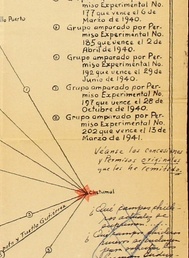 Grupo amparado por Per-
miso Experimental No.
177 que vence el 6 de
Marzo de 1940.
Grupo amparado por Per-
miso Experimental No.
185 que vence el 2 de
Abril de 1940.
Grupo amparado por Per-
miso Experimental No.
192 que vence el 29 de
Junio de 1940.
Grupo amparado por Per-
miso Experimental No.
197 que vence el 28 de
Octubre de 1940.
Grupo amparado por Per-
miso Experimental No.
202 que vence el 13 de
Marzo de 1941.
Véanse las concesiones
y Permisos originales
que les he remitido.
lle Puerto
Chetumal
y Tuxtla Gutiérrez
¿ Qué